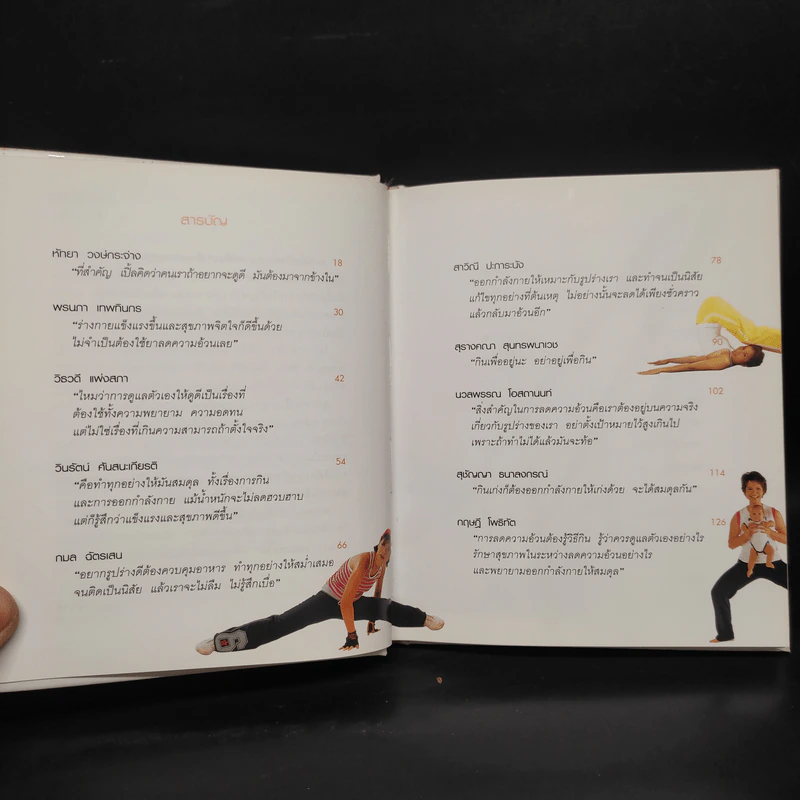 สารบัญ
หัทยา วงษ์กระจ่าง
18
“ที่สำคัญ เปิ้ลคิดว่าคนเราถ้าอยากจะดูดี มันต้องมาจากข้างใน”
พรนภา เทพทินกร
30
“ร่างกายแข็งแรงขึ้นและสุขภาพจิตใจก็ดีขึ้นด้วย
ไม่จำเป็นต้องใช้ยาลดความอ้วนเลย”
วิรวดี แพ่งสภา
42
“ไหมว่าการดูแลตัวเองให้ดูดีเป็นเรื่องที่
ต้องใช้ทั้งความพยายาม ความอดทน
แต่ไม่ใช่เรื่องที่เกินความสามารถถ้าตั้งใจจริง”
วินรัตน์ คันสนะเกียรติ
54
“คือทำทุกอย่างให้มันสมดุล ทั้งเรื่องการกิน
และการออกกำลังกาย แม้น้ำหนักจะไม่ลดฮวบฮาบ
แต่ก็รู้สึกว่าแข็งแรงและสุขภาพดีขึ้น”
กมล ฉัตรเสน
66
“อยากรูปร่างดีต้องควบคุมอาหาร ทำทุกอย่างให้สม่ำเสมอ
จนติดเป็นนิสัย แล้วเราจะไม่ลืม ไม่รู้สึกเบื่อ”
สาวิณี ปะการะนัง
78
“ออกกำลังกายให้เหมาะกับรูปร่างเรา และทำจนเป็นนิสัย
แก้ไขทุกอย่างที่ต้นเหตุ ไม่อย่างนั้นจะลดได้เพียงชั่วคราว
แล้วกลับมาอ้วนอีก”
สุรางคณา สุนทรพนาเวช
90
“กินเพื่ออยู่นะ อย่าอยู่เพื่อกิน”
นวลพรรณ โอสถานนท์
102
“สิ่งสำคัญในการลดความอ้วนคือเราต้องอยู่บนความจริง
เกี่ยวกับรูปร่างของเรา อย่าตั้งเป้าหมายไว้สูงเกินไป
เพราะถ้าทำไม่ได้แล้วมันจะท้อ”
สุชัญญา ธนาลงกรณ์
114
“กินเก่งก็ต้องออกกำลังกายให้เก่งด้วย จะได้สมดุลกัน”
กฤษฎี โพธิทัต
126
“การลดความอ้วนต้องรู้วิธีกิน รู้ว่าควรดูแลตัวเองอย่างไร
รักษาสุขภาพในระหว่างลดความอ้วนอย่างไร
และพยายามออกกำลังกายให้สมดุล”